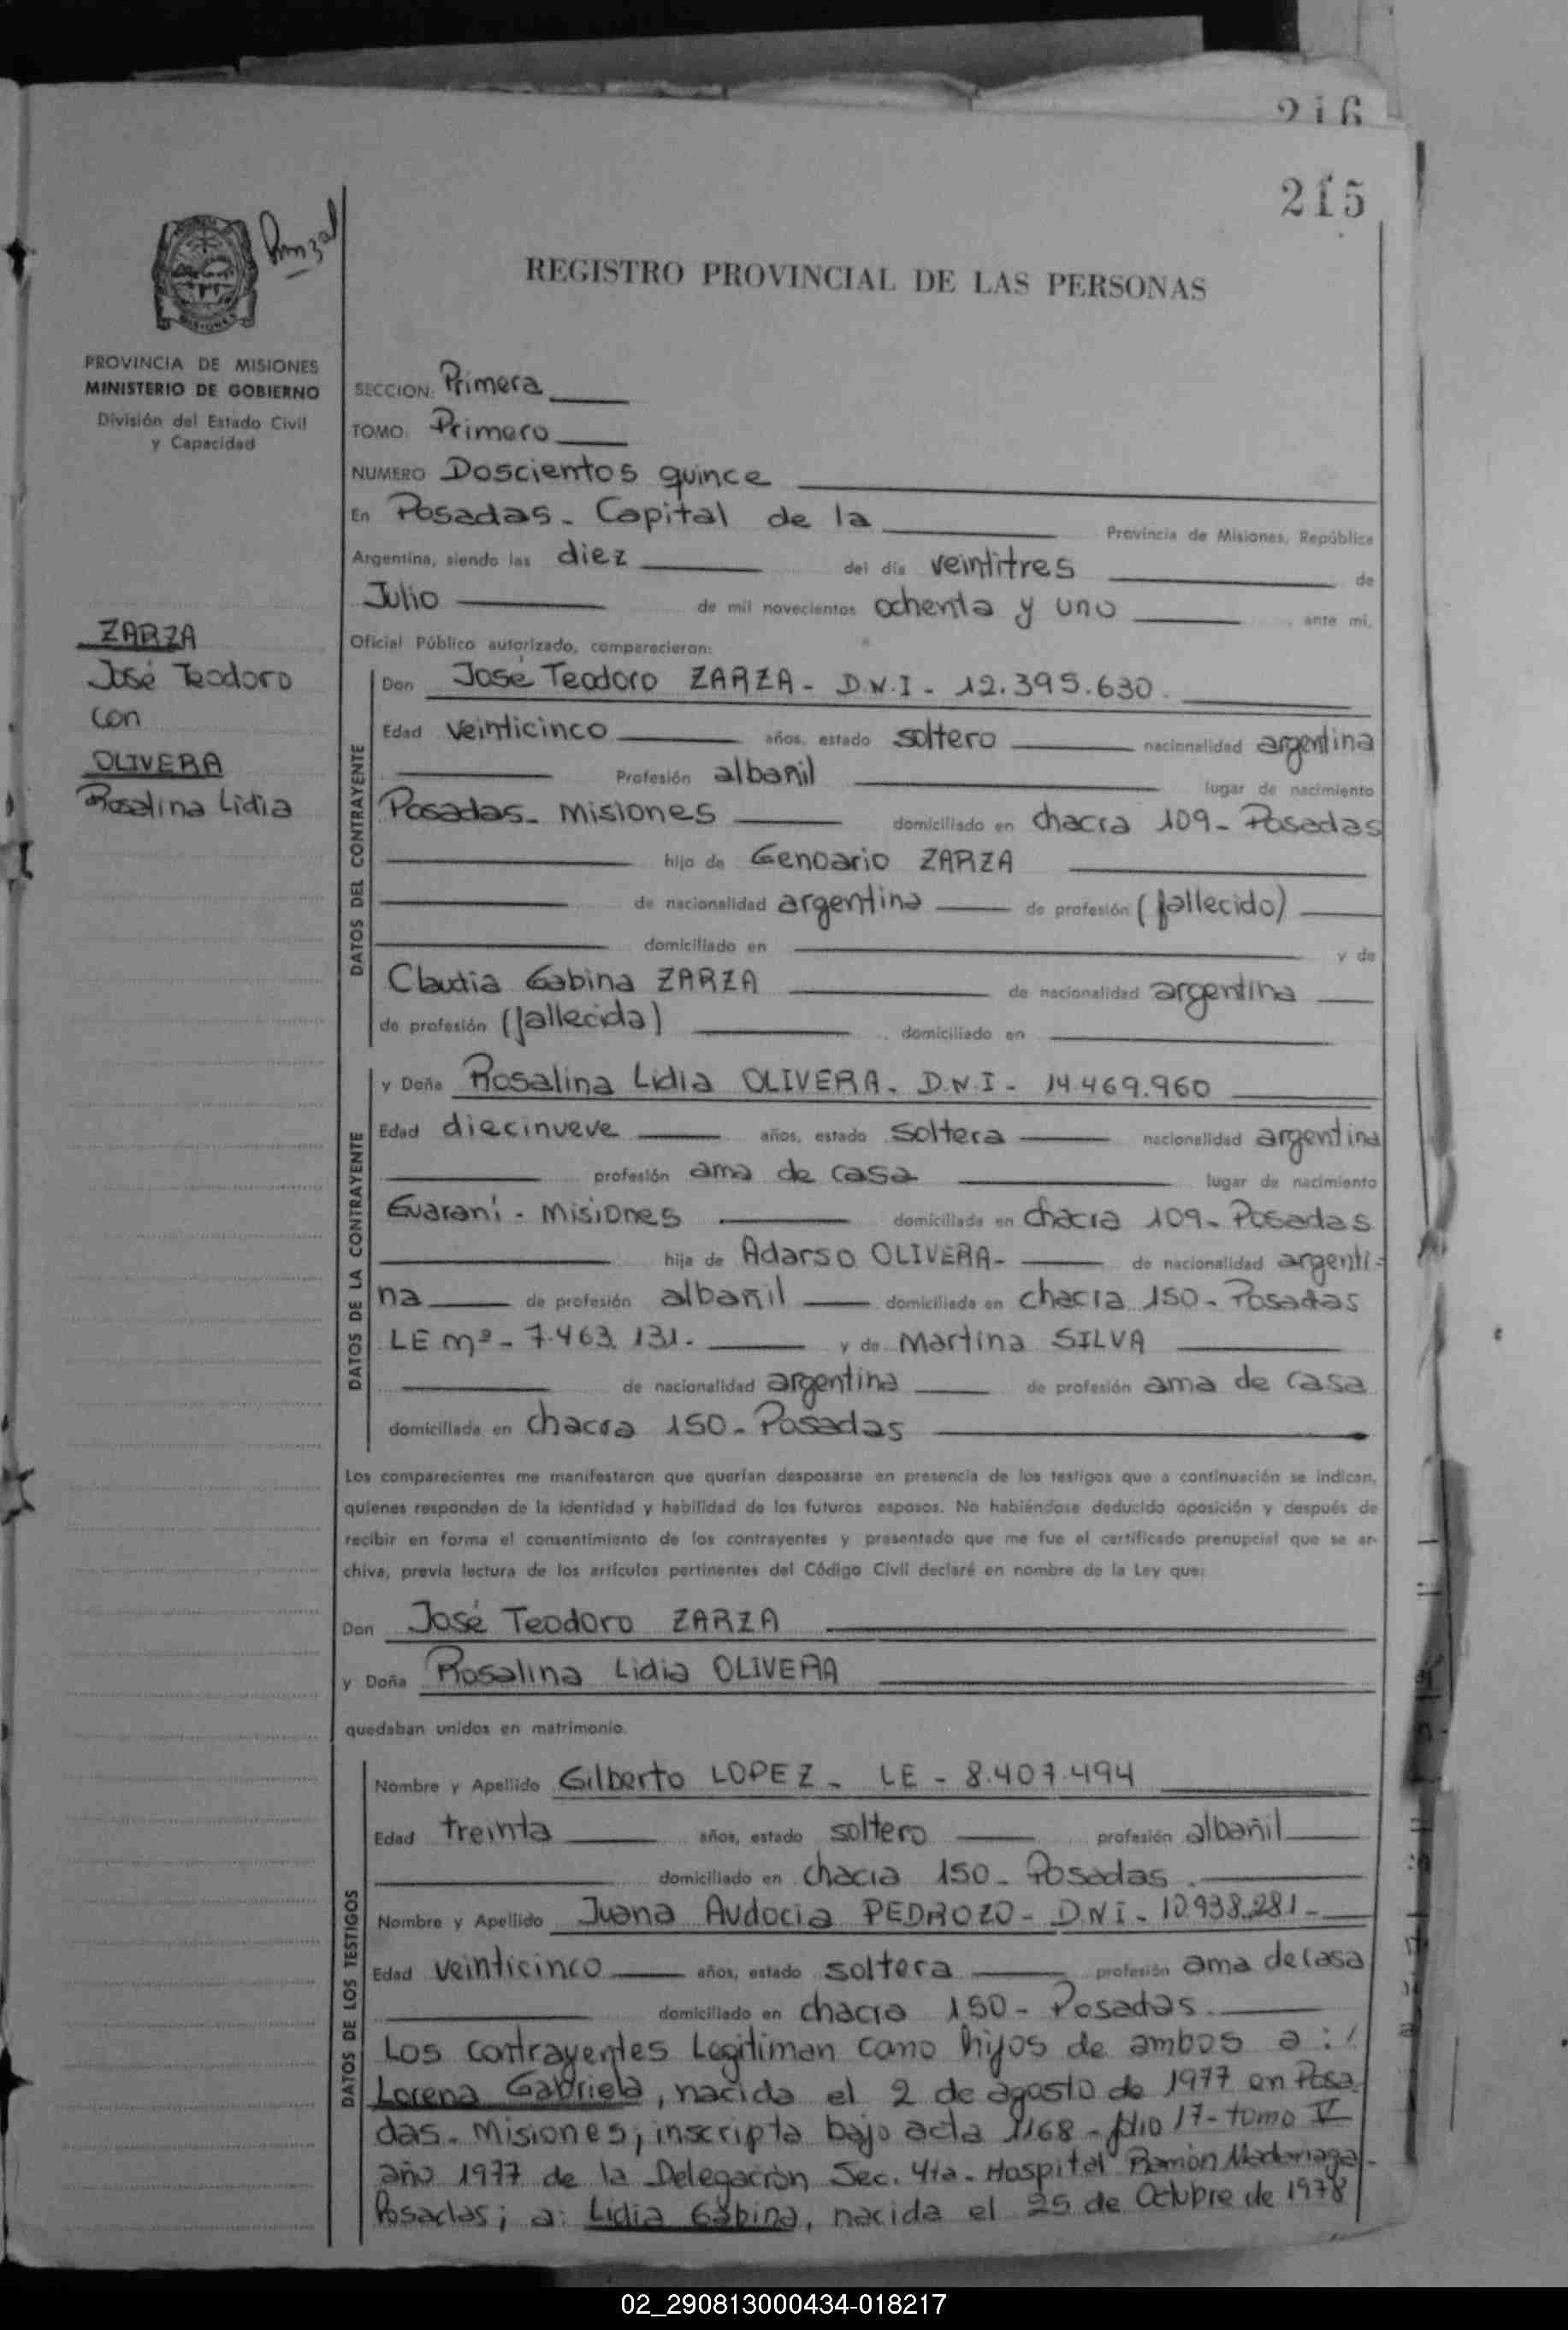 216
215
REGISTRO PROVINCIAL DE LAS PERSONAS
MISIONES
PROVINCIA DE MISIONES
MINISTERIO DE GOBIERNO
División del Estado Civil
y Capacidad
ZARZA
José Teodoro
con
OLIVERA
Rosalina Lidia
SECCION: Primera
TOMO: Primero
NUMERO Doscientos quince
En Posadas - Capital de la Provincia de Misiones, República
Argentina, siendo las diez del día veintitres de
Julio de mil novecientos ochenta y uno, ante mi,
Oficial Público autorizado, comparecieron:
DATOS DEL CONTRAYENTE
Don José Teodoro ZARZA - D.N.I - 12.395.630.
Edad veinticinco años, estado soltero nacionalidad argentina
Profesión albañil lugar de nacimiento
Posadas - Misiones domiciliado en chacra 109 - Posadas
hijo de Genoario ZARZA
de nacionalidad argentina de profesión (fallecido)
domiciliado en y de
Claudia Gabina ZARZA de nacionalidad argentina
de profesión (fallecida), domiciliado en
DATOS DE LA CONTRAYENTE
y Doña Rosalina Lidia OLIVERA - D.N.I - 14.469.960
Edad diecinueve años, estado soltera nacionalidad argentina
profesión ama de casa lugar de nacimiento
Guaraní - Misiones domiciliada en chacra 109 - Posadas
hija de Adarso OLIVERA - de nacionalidad argenti-
na de profesión albañil domiciliado en chacra 150 - Posadas
LE nº - 7.463.131. y de Martina SILVA
de nacionalidad argentina de profesión ama de casa
domiciliada en chacra 150 - Posadas
Los comparecientes me manifestaron que querían desposarse en presencia de los testigos que a continuación se indican,
quienes responden de la identidad y habilidad de los futuros esposos. No habiéndose deducido oposición y después de
recibir en forma el consentimiento de los contrayentes y presentado que me fue el certificado prenupcial que se ar-
chiva, previa lectura de los artículos pertinentes del Código Civil declaré en nombre de la Ley que:
Don José Teodoro ZARZA
y Doña Rosalina Lidia OLIVERA
quedaban unidos en matrimonio.
DATOS DE LOS TESTIGOS
Nombre y Apellido Gilberto LOPEZ - LE - 8.407.494
Edad treinta años, estado soltero profesión albañil
domiciliado en chacra 150 - Posadas.
Nombre y Apellido Juana Audocia PEDROZO - DNI - 10.938.281 -
Edad veinticinco años, estado soltera profesión ama de casa
domiciliado en chacra 150 - Posadas.
Los contrayentes Legitiman como hijos de ambos a:
Lorena Gabriela, nacida el 2 de agosto de 1977 en Posa-
das - Misiones, inscripta bajo acta 1168 - folio 17 - tomo V
año 1977 de la Delegación Sec. 4ta - Hospital Ramón Madariaga -
Posadas; a: Lidia Gabina, nacida el 25 de Octubre de 1978
02_290813000434-018217